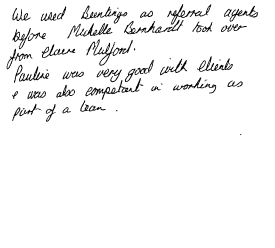 We used Buntings as referral agents
before Michelle Bernhardt took over
from Claire Mulford.
Pauline was very good with clients
& was also competent in working as
part of a team.